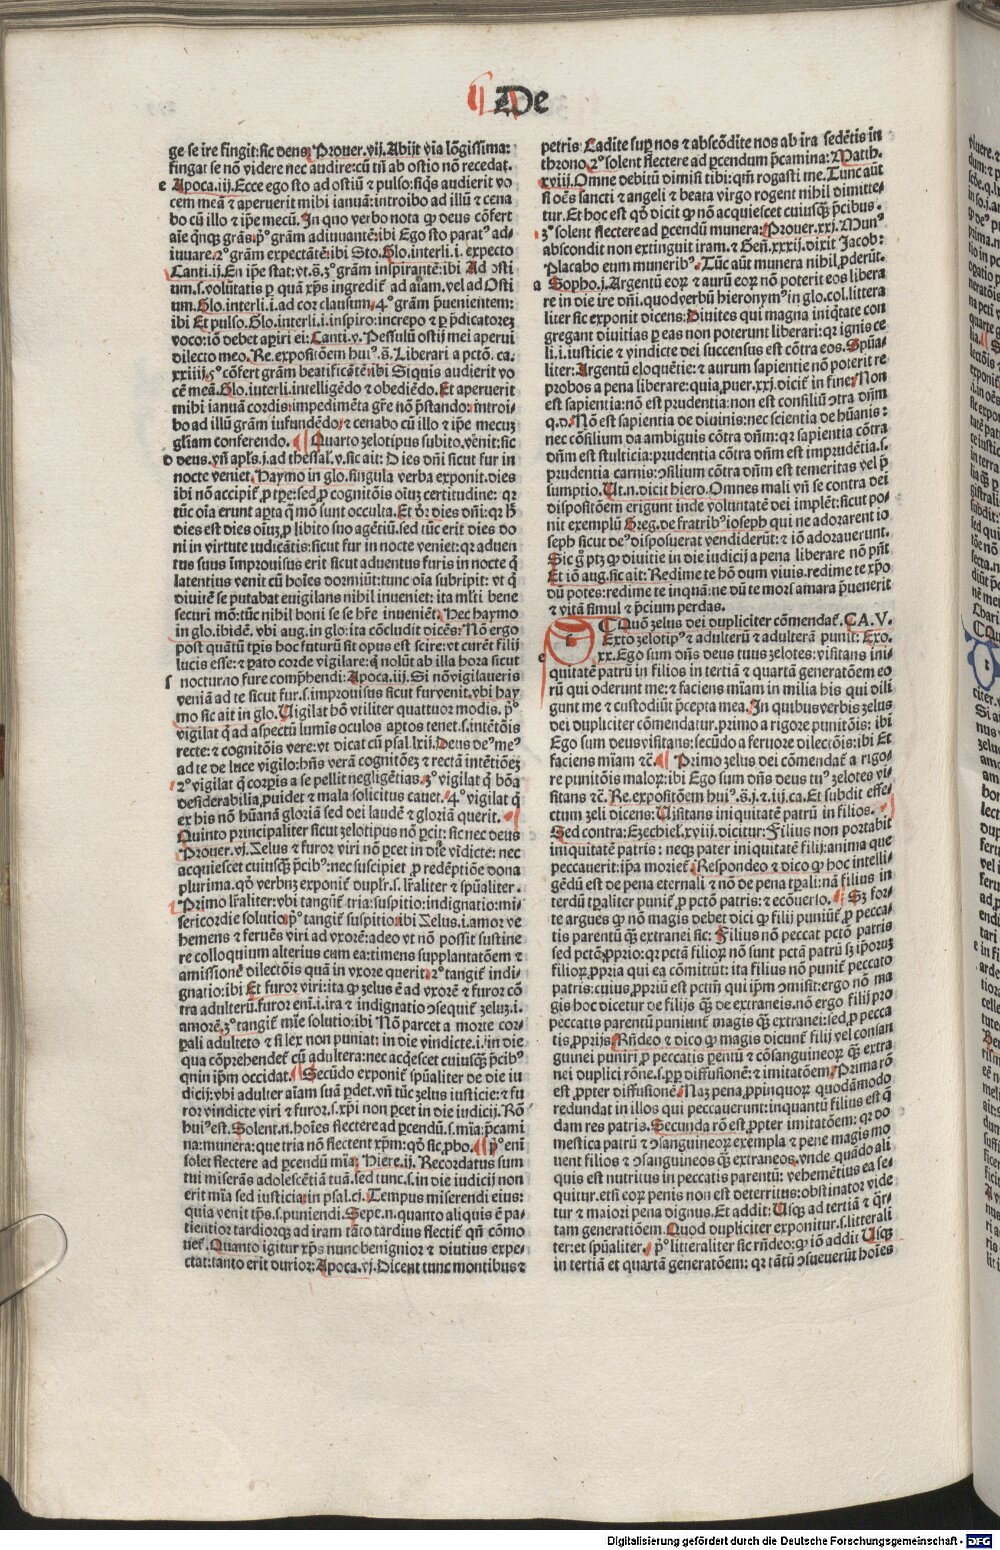 De
ge se ire fingit: sic deus Prouer.vij. Abijt via lōgissima:
fingat se nō videre nec audire: cū tn̄ ab ostio nō recedat.
e Apoca.iij. Ecce ego sto ad ostiū ⁊ pulso: siq̄s audierit vo
cem meā ⁊ aperuerit mihi ianuā: introibo ad illū ⁊ cena
bo cū illo ⁊ ip̄e mecū. In quo verbo nota ꝙ deus cōfert
aīe q̄nqꝫ grās. p̄º grām adiuuantē: ibi Ego sto paratꝰ ad⸗
iuuare. 2º grām expectātē: ibi Sto. Glo.interli.i. expecto
Canti.ij. En ip̄e stat: vt.s̄. 3º grām inspirantē: ibi Ad osti
um.s. volūtatis ꝑ quā xp̄s ingredit̄ ad aīam. vel ad Osti
um. Glo.interli.i. ad cor clausum. 4º grām p̄uenientem:
ibi Et pulso. Glo.interli.i. inspiro: increpo ⁊ ꝑ p̄dicatoreꝫ
voco: iō debet aꝑiri ei: Canti.v. Pessulū ostij mei aperui
dilecto meo. Re. expositōem huiꝰ.s̄. Liberari a pctō. ca.
xxiiij. 5º cōfert grām beatificātē: ibi Si quis audierit vo
cē meā. Glo.interli. intelligēdo ⁊ obediēdo. Et aperuerit
mihi ianuā cordis: impedimēta gr̄e nō p̄stando: introi⸗
bo ad illū grām infundēdo: ⁊ cenabo cū illo ⁊ ip̄e mecuꝫ
gl̄iam conferendo. Quarto zelotipus subito venit: sic
d deus. vn̄ apl̄s.j. ad thessal̄.v. sic ait: Dies dn̄i sicut fur in
nocte veniet. Haymo in glo. singula verba exponit. dies
ibi nō accipit̄ ꝓ tꝑe: sed ꝓ cognitōis oīuꝫ certitudine: qꝛ
tūc oīa erunt apta q̄ mō sunt occulta. Et dr̄ dies dn̄i: qꝛ hꝰ
dies est dies oīuꝫ ꝓ libito suo agētiū. sed tūc erit dies do
ni in virtute iudicātis: sicut fur in nocte veniet: qꝛ aduen
tus suus īmprouisus erit sicut aduentus furis in nocte q̄
latentius venit cū hoīes dormiūt: tunc oīa subripit: vt q̄
diuitē se putabat euigilans nihil inueniet: ita ml̄ti bene
securi mō: tūc nihil boni se se hr̄e inueniēt. Hec haymo
in glo. ibidē. vbi aug. in glo: ita cōcludit dicēs: Nō ergo
post quātū tp̄ris hoc futurū sit opus est scire: vt curēt filij
lucis esse: ⁊ ꝑato corde vigilare: q̄ nolūt ab illa hora sicut
f nocturno fure comp̄hendi: Apoca.iij. Si nō vigilaueris
veniā ad te sicut fur.s. improuisus sicut fur venit. vbi hay
mo sic ait in glo. Uigilat hō vtiliter quattuor modis. p̄º
vigilat q̄ ad aspectū lumīs oculos aꝑtos tenet.s. intētōis
recte: ⁊ cognitōis vere: vt dicat cū psal.lxij. Deus deꝰ meꝰ
ad te de luce vigilo: hn̄s verā cognitōeꝫ ⁊ rectā intētiōeꝫ
2º vigilat q̄ corꝑis a se pellit negligētias. 3º vigilat q̄ bōa
desiderabilia ꝓuidet ⁊ mala solicitus cauet. 4º vigilat q̄
ex his nō hūanā gloriā sed dei laudē ⁊ gloriā querit.
Quinto principaliter sicut zelotipus nō ꝑcit: sic nec deus
Prouer.vj. Zelus ⁊ furor viri nō ꝑcet in die vīdicte: nec
acquiescet cuiusqꝫ p̄cibꝰ: nec suscipiet ꝓ redēptiōe dona
plurima. qd̓ verbuꝫ exponit̄ dupl̄r.s. lr̄aliter ⁊ spūaliter.
Primo lr̄aliter: vbi tangūt̄ tria: suspitio: indignatio: mi⸗
sericordie solutio. p̄º tangit̄ suspitio: ibi Zelus.i. amor ve
hemens ⁊ feruēs viri ad vxorē: adeo vt nō possit sustine
re colloquium alterius cum ea: timens supplantatōem ⁊
amissionē dilectōis quā in vxore querit. 2º tangit̄ indi⸗
gnatio: ibi Et furor viri: ita ꝙ zelus ē ad vxorē ⁊ furor cō
tra adulterū. furor eni.i. ira ⁊ indignatio ꝯsequit̄ zeluꝫ.i.
amorē. 3º tangit̄ mīe solutio: ibi Nō parcet a morte cor⸗
ꝑali adultero ⁊ si lex non puniat: in die vindicte.i. in die
qua cōprehendet̄ cū adultera: nec acq̄escet cuiusqꝫ p̄cibꝰ
qnin ip̄m occidat. Secūdo exponit̄ spūaliter de die iu
dicij: vbi adulter aīam suā ꝑdet. vn̄ tūc zelus iusticie: ⁊ fu
ror vindicte viri ⁊ furor.s. xp̄i non ꝑcet in die iudicij. Rō
huiꝰ est. Solent.n. hoīes flectere ad ꝑcendū.s. mīa: p̄cami
na: munera: que tria nō flectent xp̄m: qd̓ sic ꝓbo. p̄º enī
solet flectere ad ꝑcendū mīa: Hiere.ij. Recordatus sum
tui miserās adolescētiā tuā. sed tunc.s. in die iudicij non
erit mīa sed iusticia: in psal.cj. Tempus miserendi eius:
quia venit tp̄s.s. puniendi. Sepe.n. quanto aliquis ē pa⸗
tientior tardiorqꝫ ad iram tāto tardius flectit̄ qn̄ cōmo
uet̄. Quanto igitur xp̄s nunc benignior ⁊ diutius expe⸗
ctat: tanto erit durior: Apoca.vj. Dicent tunc montibus ⁊
petris: Cadite suꝑ nos ⁊ abscōdite nos ab ira sedētis in
throno. 2º solent flectere ad ꝑcendum p̄camina: Math.
xviij. Omne debitū dimisi tibi: qm̄ rogasti me. Tunc aūt
si oēs sancti ⁊ angeli ⁊ beata virgo rogent nihil dimitte⸗
tur. Et hoc est qd̓ dicit ꝙ nō acquiescet cuiusqꝫ p̄cibus.
3º solent flectere ad ꝑcendū munera: Prouer.xxj. Munꝰ
abscondit non extinguit iram. ⁊ Gen̄.xxxij. dixit Jacob:
Placabo eum muneribꝰ. Tūc aūt munera nihil ꝓderūt.
a Sopho.j. Argentū eoꝝ ⁊ aurū eoꝝ nō poterit eos libera
re in die ire dn̄i. quod verbū hieronymꝰ in glo. col. littera
liter sic exponit dicens: Diuites qui magna iniq̄tate con
gregant diuitias ꝑ eas non poterunt liberari: qꝛ ignis ce
li.i. iusticie ⁊ vindicte dei succensus est cōtra eos. Spūa⸗
liter: Argentū eloquētie: ⁊ aurum sapientie nō poterit re
probos a pena liberare: quia ꝓuer.xxj. dicit̄ in fine: Non
est sapientia: nō est prudentia: non est consiliū ꝯtra dn̄m
q.d. Nō est sapientia de diuinis: nec scientia de hūanis:
nec cōsilium da ambiguis cōtra dn̄m: qꝛ sapientia cōtra
dn̄m est stulticia: prudentia cōtra dn̄m est imprudētia.s.
prudentia carnis: ꝯsilium cōtra dn̄m est temeritas vel p̄
sumptio. Ut.n. dicit hiero. Omnes mali vn̄ se contra dei
dispositōem erigunt inde voluntatē dei implēt: sicut po⸗
nit exemplū Greg. de fratribꝰ ioseph qui ne adorarent io
seph sicut deꝰ disposuerat vendiderūt: ⁊ iō adorauerunt.
Sic g̊ ptꝫ ꝙ diuitie in die iudicij a pena liberare nō pn̄t
Et iō aug. sic ait: Redime te hō dum viuis. redime te xp̄o
dū potes: redime te inquā: ne dū te mors amara p̄uenerit
⁊ vitā simul ⁊ p̄cium perdas.
Quō zelus dei dupliciter cōmendat̄. CA.V.
s Exto zelotipꝰ ⁊ adulterū ⁊ adulterā punit: Exo.
e xx. Ego sum dn̄s deus tuus zelotes: visitans ini⸗
quitatē patrū in filios in tertiā ⁊ quartā generatōem eo
rū qui oderunt me: ⁊ faciens mīam in milia his qui dili
gunt me ⁊ custodiūt p̄cepta mea. In quibus verbis zelus
dei dupliciter cōmendatur. primo a rigore punitōis: ibi
Ego sum deus visitans: secūdo a feruore dilectōis: ibi Et
faciens mīam ⁊c̄. Primo zelus dei cōmendat̄ a rigo⸗
re punitōis maloꝝ: ibi Ego sum dn̄s deus tuꝰ zelotes vi⸗
sitans ⁊c̄. Re. expositōem huiꝰ.s̄.j. ⁊.iij.ca. Et subdit effe⸗
ctum zeli dicens: Uisitans iniquitatē patrū in filios.
Sed contra: Ezechiel.xviij. dicitur: Filius non portabit
iniquitatē patris: neqꝫ pater iniquitatē filij: anima que
peccauerit: ip̄a moriet̄. Respondeo ⁊ dico ꝙ hoc intelli⸗
gēdū est de pena eternali ⁊ nō de pena tꝑali: nā filius in
terdū tꝑaliter punit̄ ꝓ pctō patris: ⁊ ecōuerso. Sꝫ for⸗
te argues ꝙ nō magis debet dici ꝙ filij puniūt̄ ꝓ pecca⸗
tis parentū qꝫ̄ extranei sic: Filius nō peccat pctō patris
sed pctō ꝓprio: qꝛ pctā filioꝝ nō sunt pctā patrū sꝫ ip̄oruꝫ
filioꝝ, ꝓpria qui ea cōmittūt: ita filius nō punit̄ peccato
patris: cuius ꝓpriū est pctm̄ qui ip̄m ꝯmisit: ergo nō ma
gis hoc dicetur de filijs qꝫ̄ de extraneis. nō ergo filij pro
peccatis parentū puniunt̄ magis qꝫ̄ extranei: sed ꝓ pecca
tis ꝓprijs. Rn̄deo ⁊ dico ꝙ magis dicunt̄ filij vel consan
guinei puniri ꝓ peccatis ꝑentū ⁊ cōsanguineoꝝ qꝫ̄ extra
nei duplici rōne.s. ꝓꝑ diffusionē: ⁊ imitatōem. Prima rō
est ꝓpter diffusionē. Naꝫ pena ꝓpinquoꝝ quodāmodo
redundat in illos qui peccauerunt: inquantū filius est q̄
dam res patris. Secunda rō est ꝓpter imitatōem: qꝛ do
mestica patrū ⁊ ꝯsanguineoꝝ exempla ⁊ pene magis mo
uent filios ⁊ ꝯsanguineos qꝫ̄ extraneos. vnde quādo ali
quis est nutritus in peccatis parentū: vehemētius ea se⸗
quitur. etsi eoꝝ penis non est deterritus: obstinatior vide
tur ⁊ maiori pena dignus. Et addit: Usqꝫ ad tertiā ⁊ q̄r⸗
tam generatiōem. Quod dupliciter exponitur.s. litterali
ter: et spūaliter. p̄º litteraliter sic rn̄deo: ꝙ iō addit Usqꝫ
in tertiā et quartā generatōem: qꝛ tātū ꝯsueuerūt hoīes
Digitalisierung gefördert durch die Deutsche Forschungsgemeinschaft - DFG